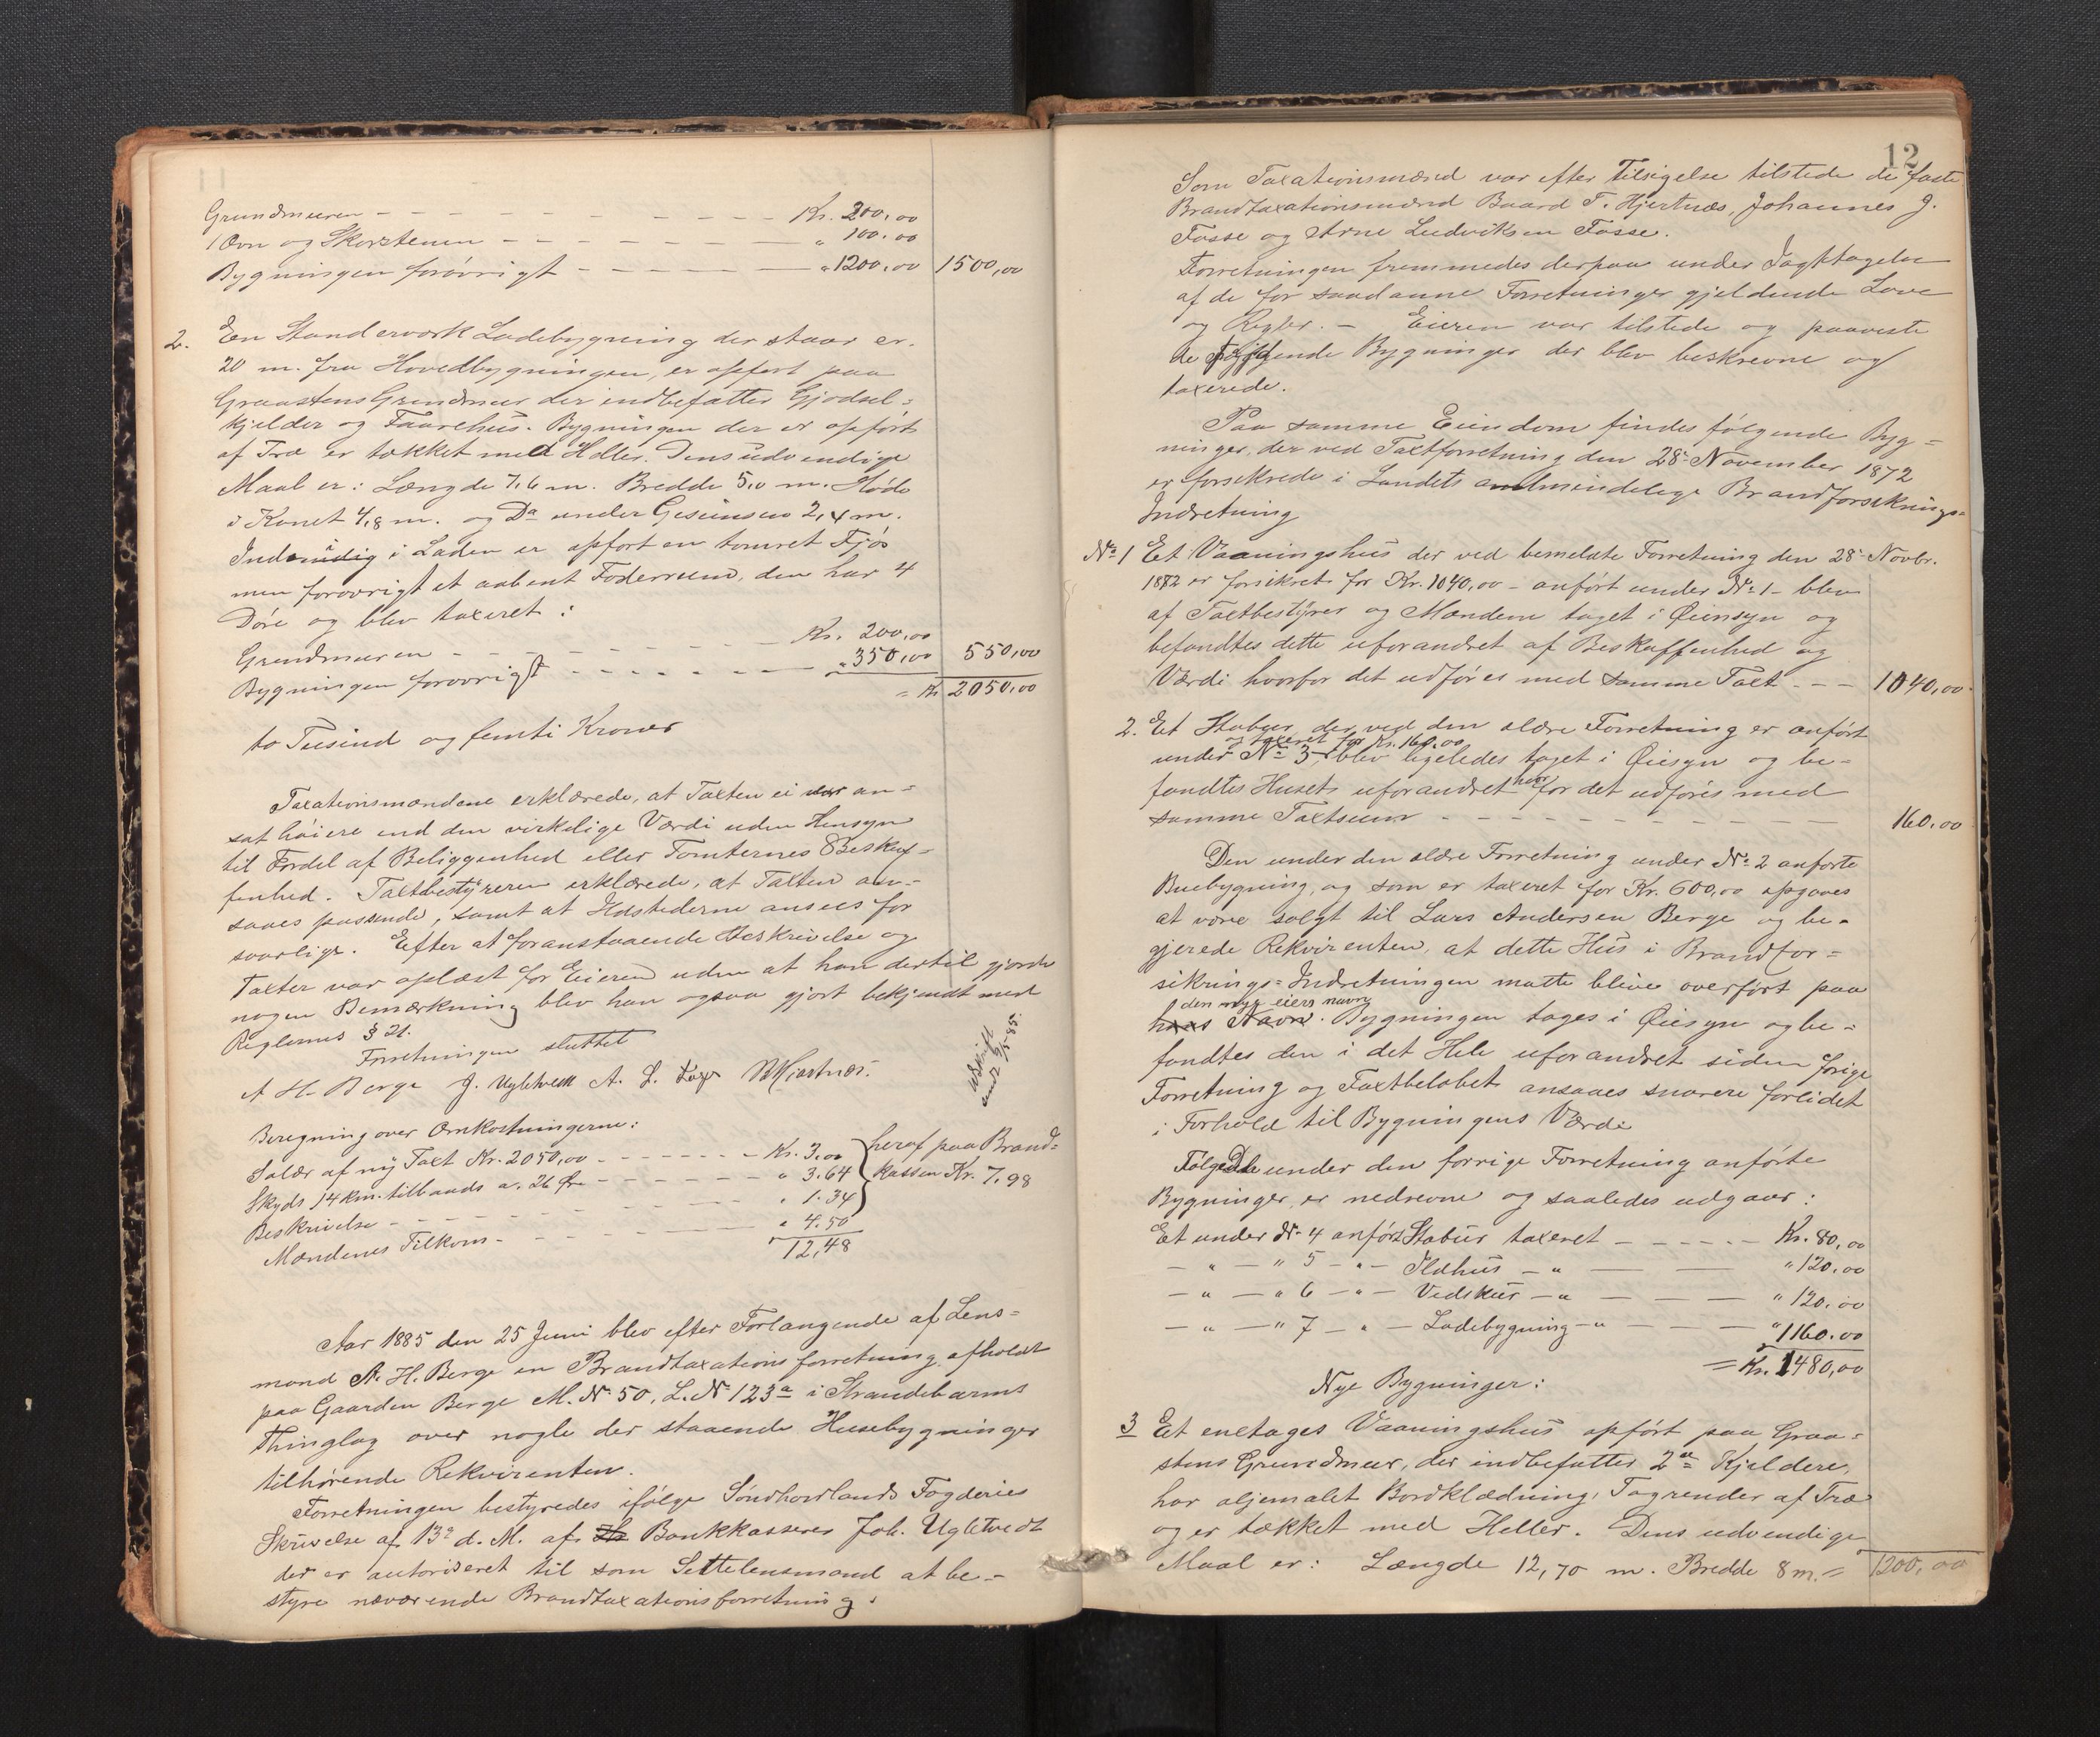 Grundmuren - - - - - - - - - - - - Kr. 200,00
1 Ovn og Skorstenen - - - - - - - " 100.00
Bygningen forøvrigt - - - - - - " 1200,00 1500,00
2. En Standerværk Ladebygning der staar er.
20 m. fra Hovedbygningen, er opført paa
Graastens Grundmur der indbefatter Gjødsel-
kjelder og Faarehus. Bygningen der er opført
af Træ er tækket med Heller. Dens udvendige
Maal er: Længde 7,6 m. Bredde 5,0 m. Høide
i Rønet 4,8 m. og Do under Gesimsen 2,4 m.
Indvendig i Laden er opført en tømret Fjøs
men forøvrigt et aabent Foderrum, den har 4
Døre og blev taxeret:
Grundmuren - - - - - - Kr. 200,00
Bygningen forøvrigt - - - - - - " 350,00 550,00
= Kr. 2050,00
to Tusind og femti Kroner
Taxationsmændene erklærede, at Taxten ei var an-
sat høiere end den virkelige Værdi uden Hensyn
til Fordel af Beliggenhed eller Tomternes Beskaf-
fenhed. Taxtbestyreren erklærede, at Taxten an-
saaes passende, samt at Ildstederne ansees for
svarlige. Efter at foranstaaende Beskrivelse og
Taxter var oplæst for Eieren uden at han dertil gjorde
nogen Bemærkning blev han ogsaa gjort bekjendt med
Reglernes § 21.
Forretningen sluttet
A H. Berge J. Ugletvedt A. L. Fosse Hjertnæs.
Udskrift
sendt
Beregning over Omkostningerne:
Salær af ny Taxt Kr. 2050,00 - - - - - - Kr. 3,00 heraf paa Brand-
Skyds 14 km. tillands a. 26 Øre - - - - - - " 3.64 kassen Kr. 7,98
Beskrivelse - - - - - - " 1.34
Mændenes Tilkom - - - - - - " 4.50
12,48
Aar 1885 den 25 Juni blev efter Forlangende af Lens-
mand A. H. Berge en Brandtaxationsforretning afholdt
paa Gaarden Berge M. No 50, L. No 123a i Strandebarms
Thinglag over nogle der staaende Husebygninger
tilhørende Rekvirenten.
Forretningen bestyredes ifølge Søndhordlands Fogderies
Skrivelse af 13de d. M. af Bankkasserer Joh. Ugletvedt
der er autoriseret til som Settelensmand at be-
styre nærværende Brandtaxationsforretning.
12
Som Taxationsmænd var efter Tilsigelse tilstede de faste
Brandtaxationsmænd Baard T. Hjertnæs, Johannes J.
Fosse og Arne Ludviksen Fosse.
Forretningen fremmedes derpaa under Iagttagelse
af de for saadanne Forretninger gjeldende Love
og Regler. - Eieren var tilstede og paaviste
de følgende Bygninger der blev beskrevne og
taxerede.
Paa samme Eiendom findes følgende Byg-
ninger, der ved Taxtforretning den 28- November 1872
er forsikrede i Landets almindelige Brandforsiknings-
Indretning
No 1 Et Vaaningshus der ved bemeldte Forretning den 28- Novbr.
1872 er forsikret for Kr. 1040,00 - anført under No 1 - blev
af Taxtbestyrer og Mændene taget i Øiensyn og
befandtes dette uforandret af Beskaffenhed og
Værdi hvorfor det udføres med samme Taxt - - - 1040,00
2. Et Stabur der ved den ældre Forretning er anført
og taxeret for Kr. 160.00
under No 3, blev ligeledes taget i Øiesyn og be-
fandtes Huset uforandret hvorfor det udføres med
samme Taxtsum - - - - - - - - - - 160.00
Den under den ældre Forretning under No 2 anførte
Buebygning, og som er taxeret for Kr. 600,00 opgaves
at være solgt til Lars Andersen Berge og be-
gjerede Rekvirenten, at dette Hus i Brandfor-
sikrings-Indretningen maatte blive overført paa
den nye eiers navn
hans Navn. Bygningen tages i Øiesyn og be-
fandtes den i det Hele uforandret siden forige
Forretning og Taxtbeløbet ansaaes snarere forlidet
i Forhold til Bygningens Værde
Følgende under den forrige Forretning anførte
Bygninger, er nedrevne og saaledes udgaar:
Et under No 4 anført Stabur taxeret - - - - - Kr. 80,00
- " - " 5 - " - Ildhus - " - - " 120.00
- " - " 6 - " - Vedskur - " - - - " 120.00
- " - " 7 - " - Ladebygning - " - - - " 1160.00
= Kr. 1480,00
Nye Bygninger:
3 Et enetages Vaaningshus opført paa Graa-
stens Grundmur, der indbefatter 2de Kjeldere,
har oljemalet Bordklædning, Tagrender af Træ
og er tækket med Heller. Dens udvendige
Maal er: Længde 12,70 m. Bredde 8 m. = 1200,00